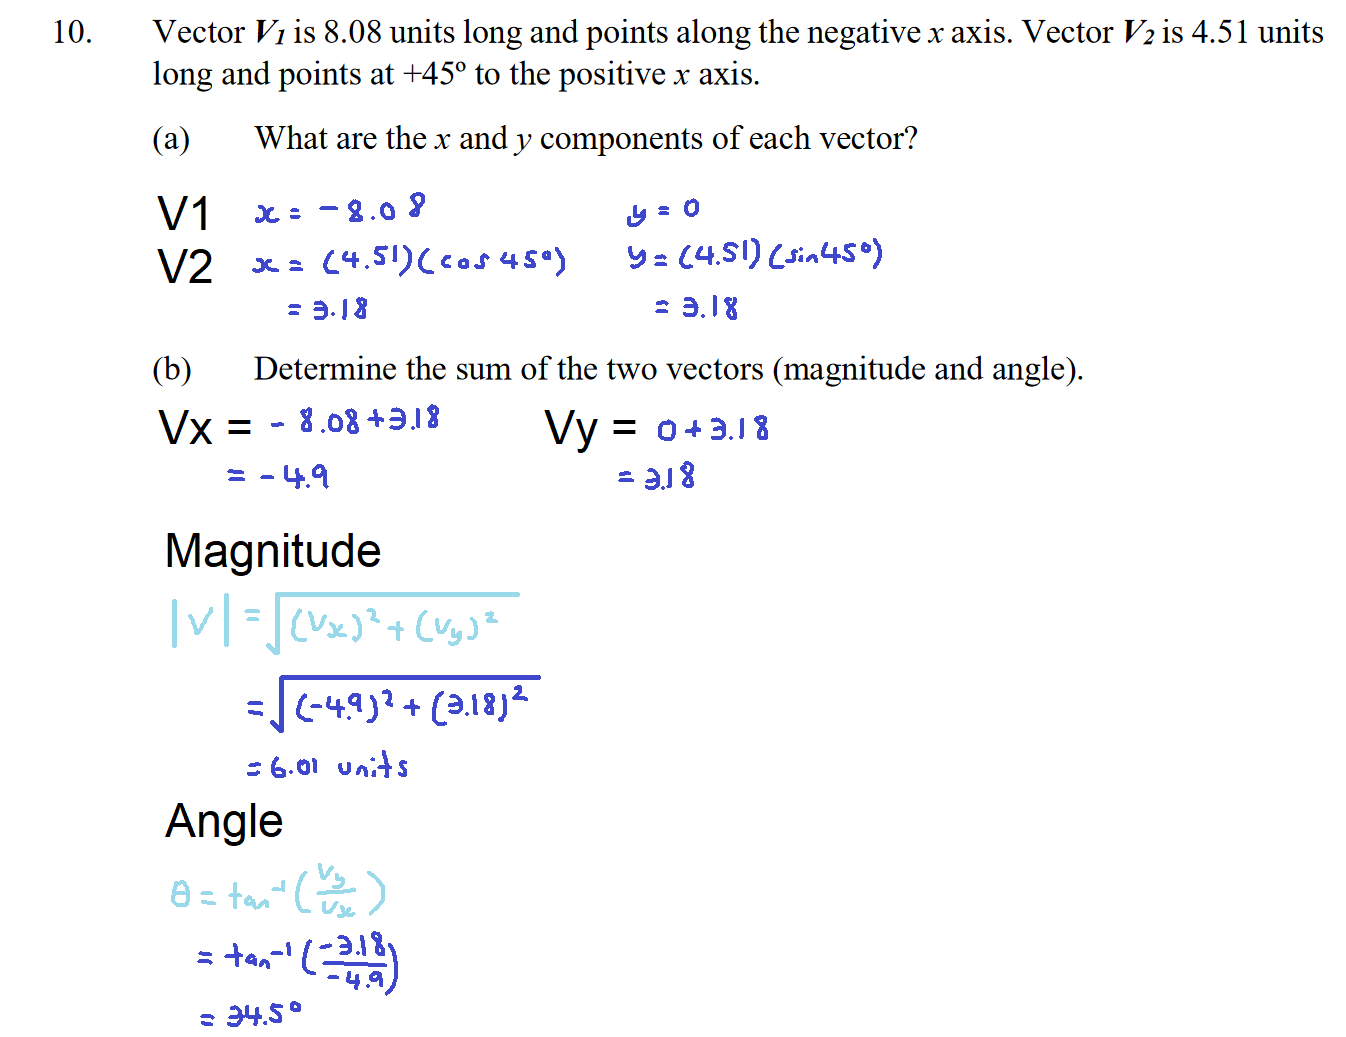 10. Vector V₁ is 8.08 units long and points along the negative x axis. Vector V₂ is 4.51 units
long and points at +45º to the positive x axis.
(a) What are the x and y components of each vector?
V1 x = -8.08 y = 0
V2 x = (4.51)(cos 45°) y = (4.51)(sin45°)
= 3.18 = 3.18
(b) Determine the sum of the two vectors (magnitude and angle).
Vx = -8.08+3.18 Vy = 0+3.18
= -4.9 = 3.18
Magnitude
|V| = √((Vx)² + (Vy)²)
= √((-4.9)² + (3.18)²)
= 6.01 units
Angle
θ = tan⁻¹(Vy/Vx)
= tan⁻¹(-3.18/-4.9)
= 34.5°